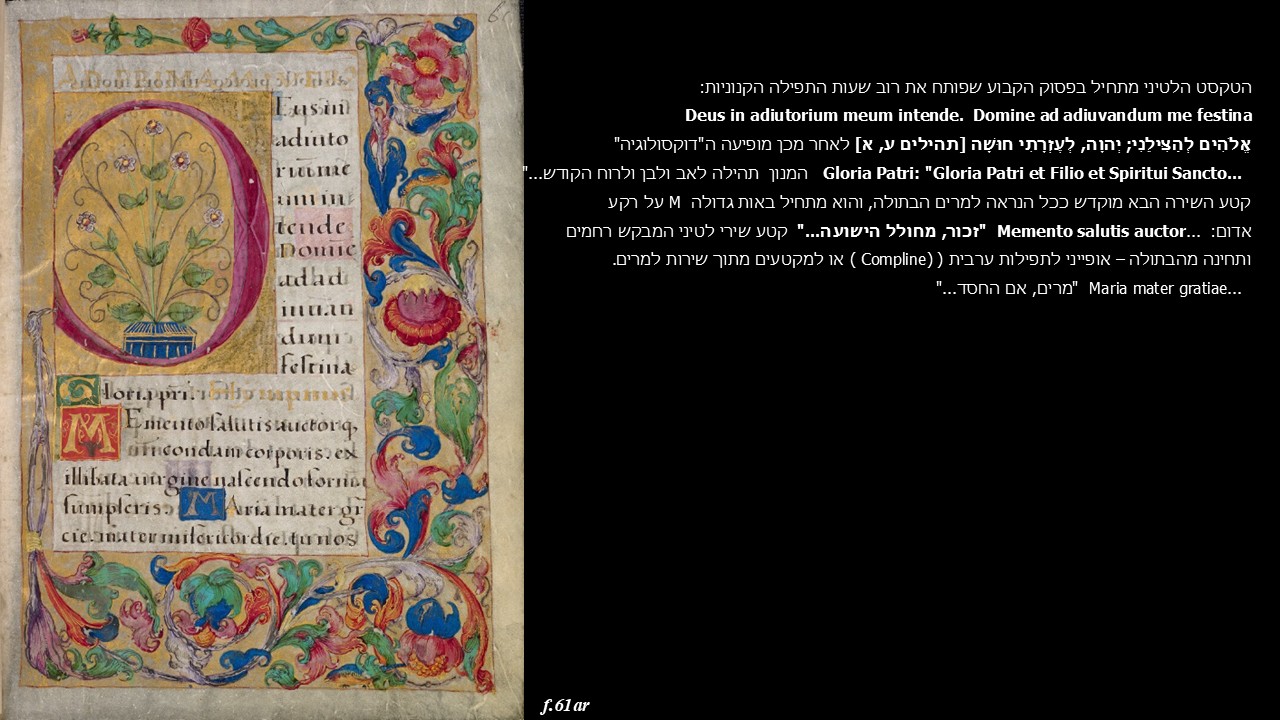 Eus in
adiuto
rium me
um in
tende
Domie
ad ad
iuuan
dum
festina
Gloria pri.
MEmento salutis auctor q
condam corporis. ex
illibata uirgine nascendo forma
sumpseris. MAria mater gr
cie. mater misericordie. tu nos
הטקסט הלטיני מתחיל בפסוק הקבוע שפותח את רוב שעות התפילה הקנוניות:
Deus in adiutorium meum intende. Domine ad adiuvandum me festina
אֱלֹהִים לְהַצִּילֵנִי; יְהוָה, לְעֶזְרָתִי חוּשָׁה [תהילים ע, א] לאחר מכן מופיעה ה"דוקסולוגיה"
Gloria Patri: "Gloria Patri et Filio et Spiritui Sancto... המנון תהילה לאב ולבן ולרוח הקודש..."
קטע השירה הבא מוקדש ככל הנראה למרים הבתולה, והוא מתחיל באות גדולה M על רקע
אדום: ...Memento salutis auctor "זכור, מחולל הישועה..." קטע שירי לטיני המבקש רחמים
ותחינה מהבתולה – אופייני לתפילות ערבית ( (Compline ) או למקטעים מתוך שירות למרים.
...Maria mater gratiae "מרים, אם החסד..."
f.61ar